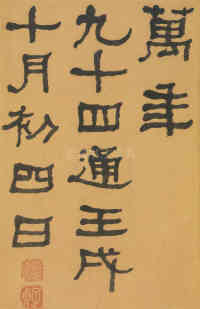 萬年
九十四通壬戌
十月初四日